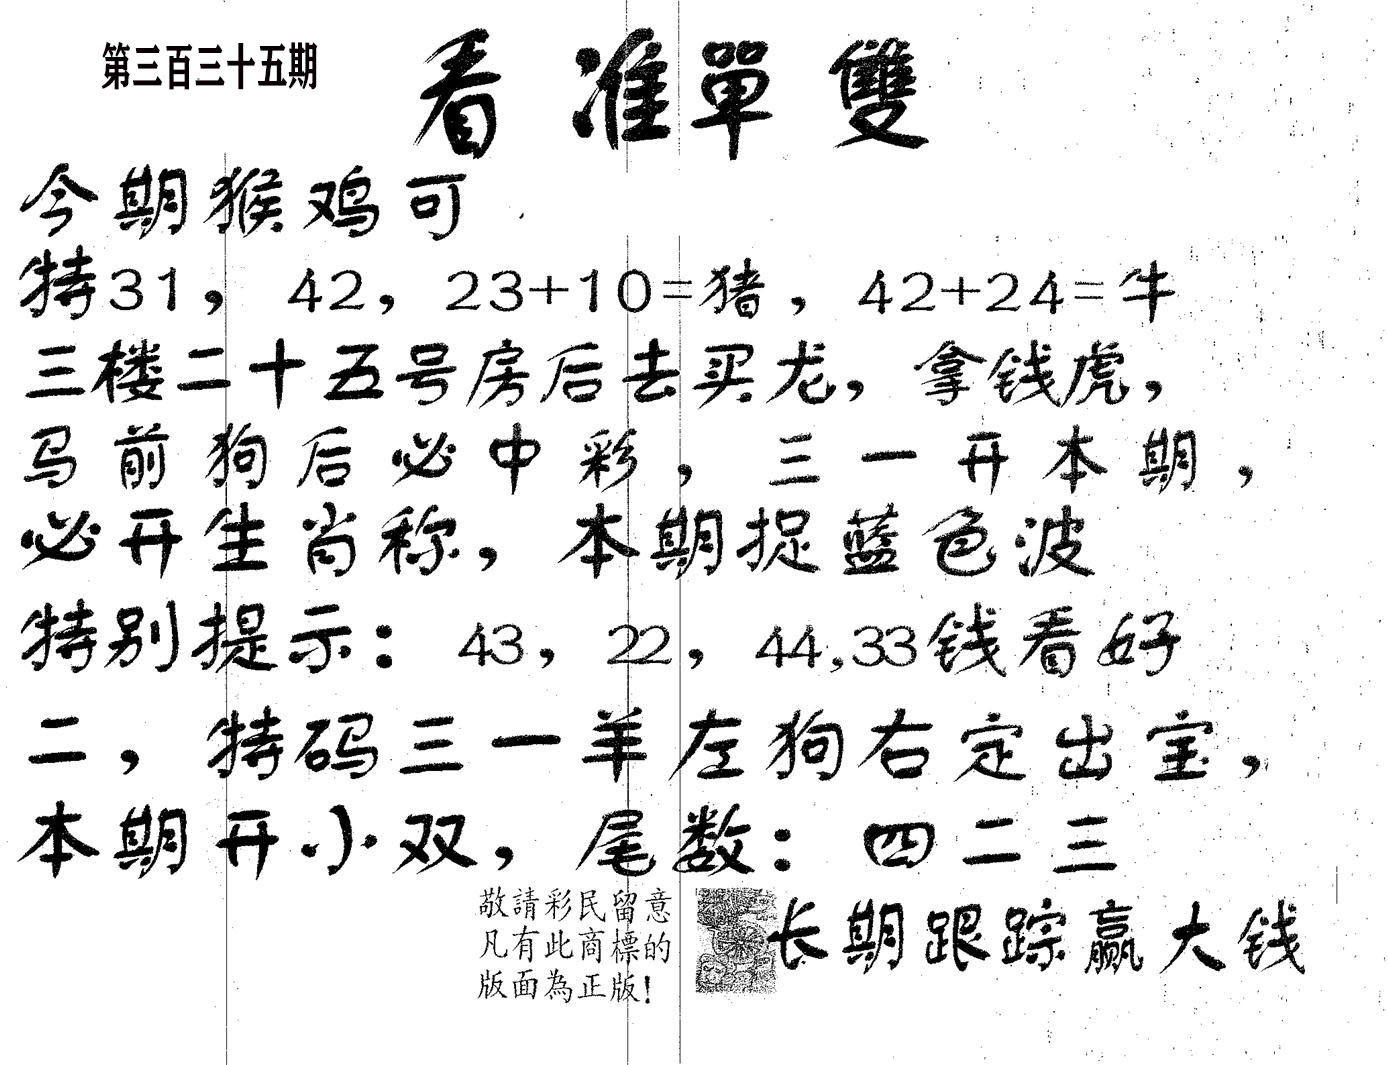 第三百三十五期
看准單雙
今期猴鸡可
特31，42，23+10=猪，42+24=牛
三楼二十五号房后去买龙，拿钱虎，
马前狗后必中彩，三一开本期，
必开生肖称，本期捉蓝色波
特别提示：43，22，44,33钱看好
二，特码三一羊左狗右定出宝，
本期开小双，尾数：四二三
敬請彩民留意
凡有此商標的
版面為正版!
长期跟踪赢大钱